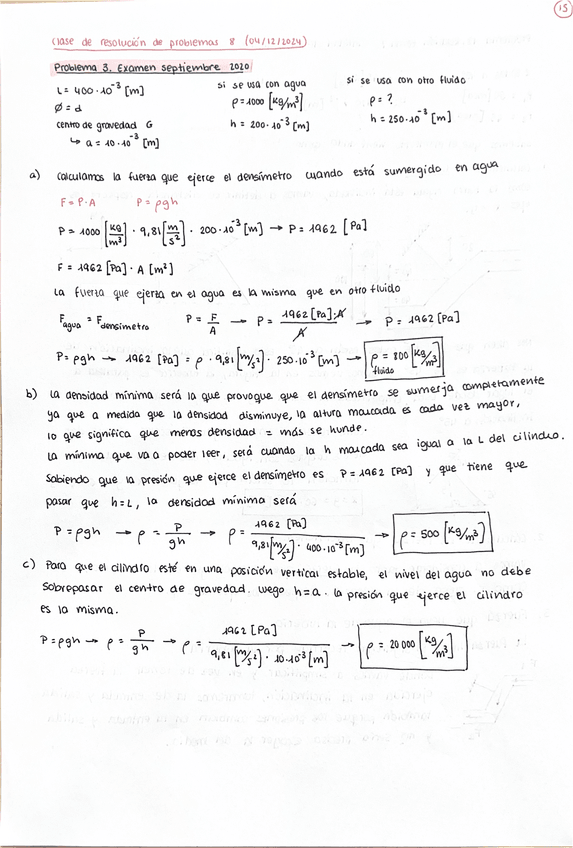 15
Clase de resolución de problemas 8 (04/12/2024)
Problema 3. Examen septiembre 2020
L = 400·10⁻³ [m]
Ø = d
centro de gravedad G
↳ a = 10·10⁻³ [m]
si se usa con agua
ρ = 1000 [kg/m³]
h = 200·10⁻³ [m]
si se usa con otro fluido
ρ = ?
h = 250·10⁻³ [m]
a) calculamos la fuerza que ejerce el densímetro cuando está sumergido en agua
F = P·A P = ρgh
P = 1000 [kg/m³] · 9,81 [m/s²] · 200·10⁻³ [m] → P = 1962 [Pa]
F = 1962 [Pa] · A [m²]
La fuerza que ejerza en el agua es la misma que en otro fluido
F agua = F densímetro P = F/A → P = 1962 [Pa]·A / A → P = 1962 [Pa]
P = ρgh → 1962 [Pa] = ρ · 9,81 [m/s²] · 250·10⁻³ [m] → ρ fluido = 800 [kg/m³]
b) la densidad mínima será la que provoque que el densímetro se sumerja completamente
ya que a medida que la densidad disminuye, la altura marcada es cada vez mayor,
lo que significa que menos densidad = más se hunde.
La mínima que va a poder leer, será cuando la h marcada sea igual a la L del cilindro.
Sabiendo que la presión que ejerce el densímetro es P = 1962 [Pa] y que tiene que
pasar que h = L, la densidad mínima será
P = ρgh → ρ = P/gh → ρ = 1962 [Pa] / 9,81 [m/s²] · 400·10⁻³ [m] → ρ = 500 [kg/m³]
c) Para que el cilindro esté en una posición vertical estable, el nivel del agua no debe
sobrepasar el centro de gravedad. Luego h = a. la presión que ejerce el cilindro
es la misma.
P = ρgh → ρ = P/gh → ρ = 1962 [Pa] / 9,81 [m/s²] · 10·10⁻³ [m] → ρ = 20 000 [kg/m³]